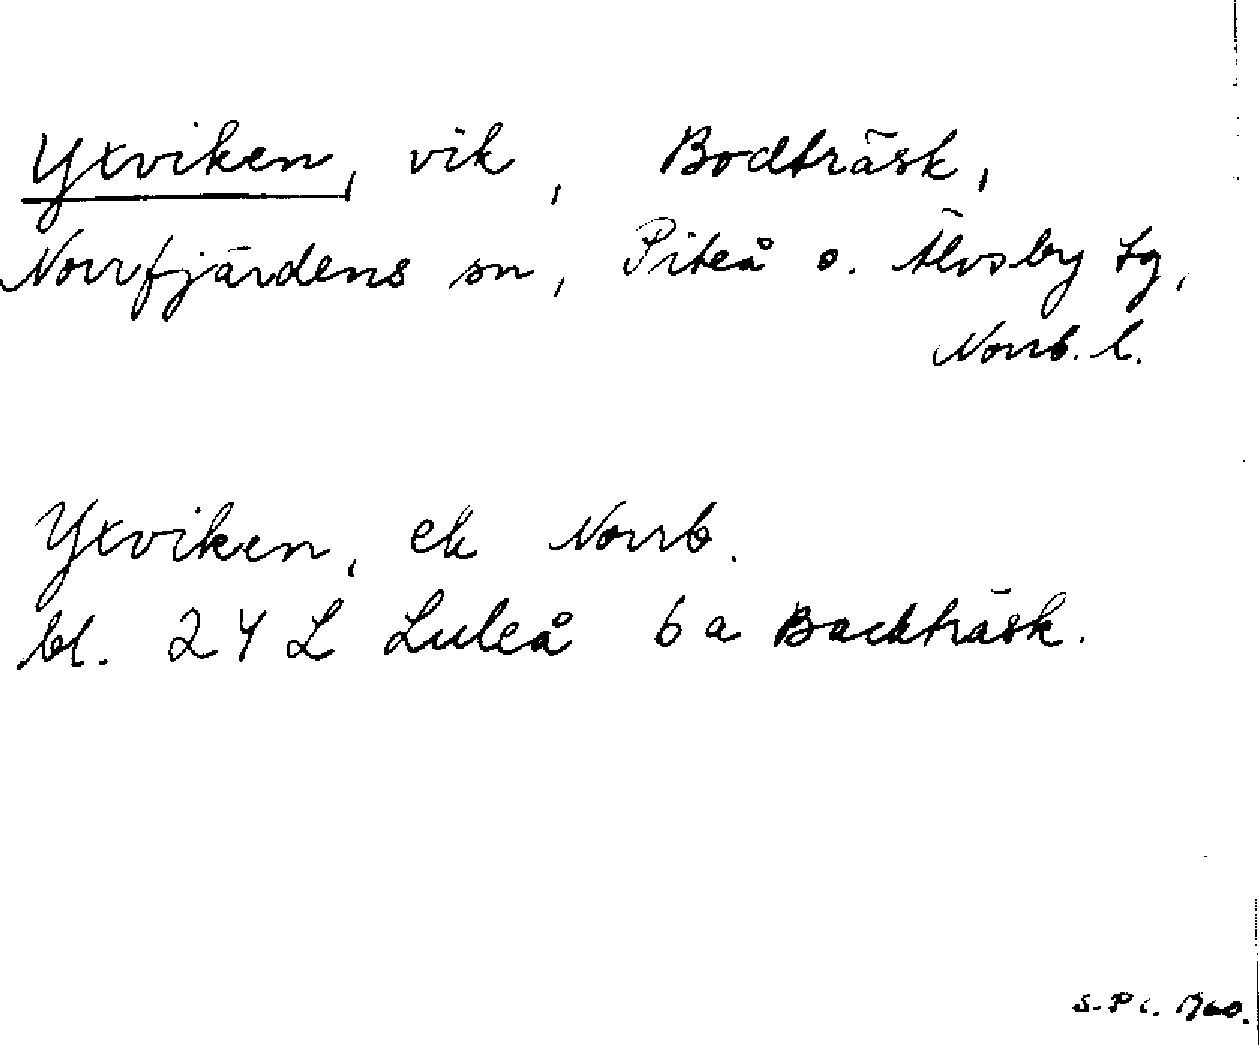 Yxviken, vik, Bodträsk,
Norrfjärdens sn, Piteå o. Älvsby tg,
Norrb. l.
Yxviken, ek Norrb.
bl. 24 L Luleå 6 a Backträsk.